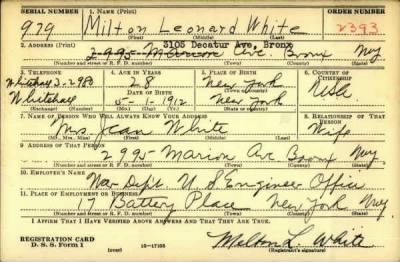 SERIAL NUMBER 1. NAME (Print) ORDER NUMBER
979 Milton Leonard White 2393
(First) (Middle) (Last)
3105 Decatur Ave, Bronx
2. ADDRESS (Print)
2995 Marion Ave. Bronx NY
(Number and street or R. F. D. number) (Town) (County) (State)
3. TELEPHONE 4. AGE IN YEARS 5. PLACE OF BIRTH 6. COUNTRY OF CITIZENSHIP
28 New York
DATE OF BIRTH (Town or county)
5-1-1912 New York USA
(Exchange) (Number) (Mo.) (Day) (Yr.) (State or country)
7. NAME OF PERSON WHO WILL ALWAYS KNOW YOUR ADDRESS 8. RELATIONSHIP OF THAT PERSON
Mrs. Jean White Wife
(Mr., Mrs., Miss) (First) (Middle) (Last)
9. ADDRESS OF THAT PERSON
2995 Marion Ave Bronx NY
(Number and street or R. F. D. number) (Town) (County) (State)
10. EMPLOYER'S NAME
War Dept. U S Engineer Office
11. PLACE OF EMPLOYMENT OR BUSINESS
17 Battery Place New York NY
(Number and street or R. F. D. number) (Town) (County) (State)
I AFFIRM THAT I HAVE VERIFIED ABOVE ANSWERS AND THAT THEY ARE TRUE.
REGISTRATION CARD
D. S. S. Form 1 (over) 16-17105 Milton L. White
(Registrant's signature)